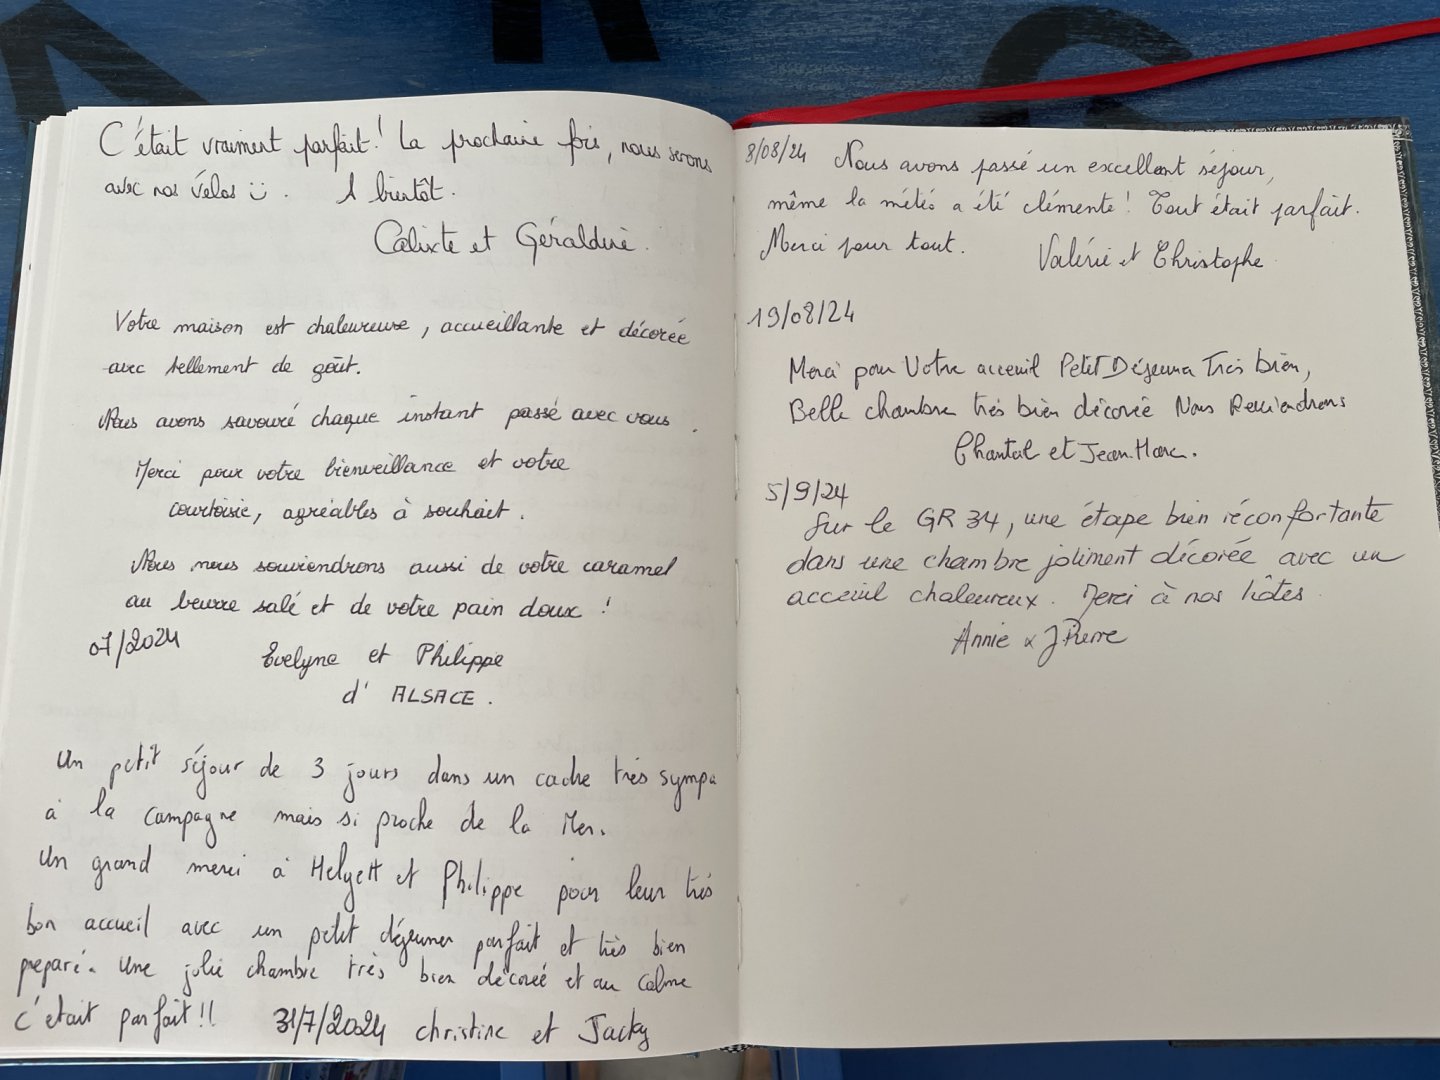 C'était vraiment parfait! La prochaine fois, nous serons
avec nos vélos ü. A bientôt.
Calixte et Géraldine.
Votre maison est chaleureuse, accueillante et décorée
avec tellement de goût.
Nous avons savouré chaque instant passé avec vous.
Merci pour votre bienveillance et votre
courtoisie, agréables à souhait.
Nous nous souviendrons aussi de votre caramel
au beurre salé et de votre pain doux !
07/2024
Evelyne et Philippe
d' ALSACE.
Un petit séjour de 3 jours dans un cadre très sympa
à la campagne mais si proche de la Mer.
Un grand merci à Helyett et Philippe pour leur très
bon accueil avec un petit déjeuner parfait et très bien
préparé. Une jolie chambre très bien décorée et au calme
c'etait parfait!! 31/7/2024 christine et Jacky
8/08/24 Nous avons passé un excellent séjour,
même la météo a été clémente! Tout était parfait.
Merci pour tout. Valérie et Christophe
19/08/24
Merci pour Votre acceuil Petit Déjeuner Très bien,
Belle chambre très bien décorée Nous Reviendrons
Chantal et Jean-Marc.
5/9/24
Sur le GR 34, une étape bien réconfortante
dans une chambre joliment décorée avec un
acceuil chaleureux. Merci à nos hôtes.
Annie & J.Pierre